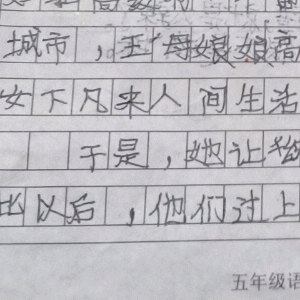 城市,王母娘娘高
女下凡来人间生活
于是,她让
比以后,他们讨上
五年级语